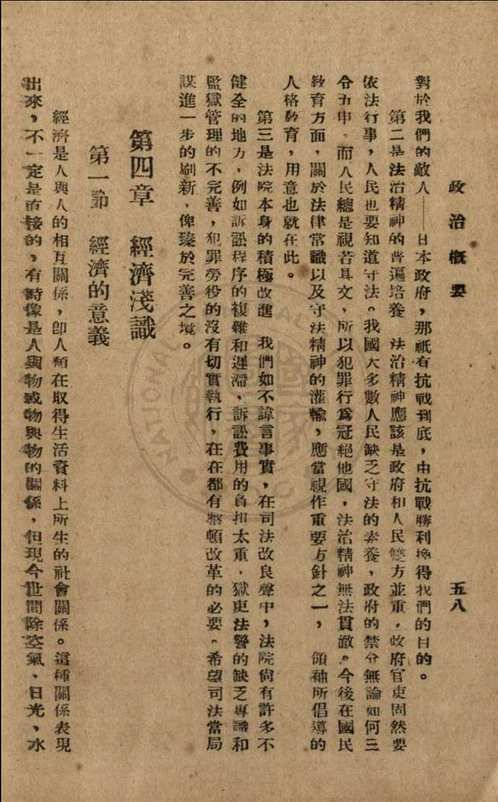 政治概要
五八
對於我們的敵人——日本政府，那祇有抗戰到底，由抗戰勝利換得我們的目的。
第二是法治精神的普遍培養　法治精神應該是政府和人民雙方並重，政府官吏固然要
依法行事，人民也要知道守法。我國大多數人民缺乏守法的素養，政府的禁令無論如何三
令五申，而人民總是視若具文，所以犯罪行爲冠絕他國，法治精神無法貫澈。今後在國民
教育方面，關於法律常識以及守法精神的灌輸，應當視作重要方針之一，　領袖所倡導的
人格教育，用意也就在此。
第三是法院本身的積極改進　我們如不諱言事實，在司法改良聲中，法院尙有許多不
健全的地方，例如訴訟程序的複雜和遲滯，訴訟費用的負担太重，獄吏法警的缺乏專識和
監獄管理的不完善，犯罪勞役的沒有切實執行，在在都有整頓改革的必要。希望司法當局
謀進一步的刷新，俾臻於完善之境。
第四章　經濟淺識
第一節　經濟的意義
經濟是人與人的相互關係，卽人類在取得生活資料上所生的社會關係。這種關係表現
出來，不一定是直接的，有時像是人與物或物與物的關係，但現今世間除空氣、日光，水